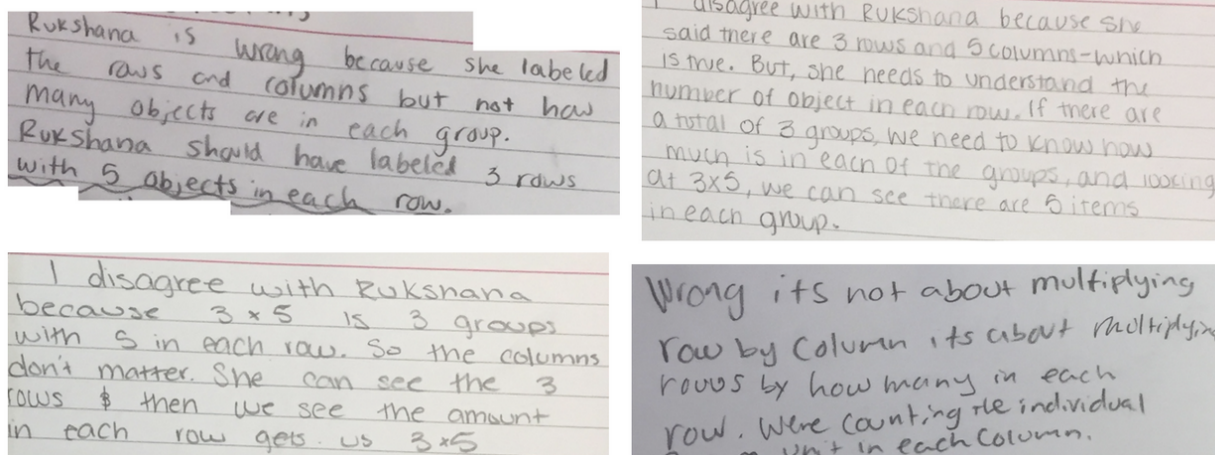 Rukshana is wrong because she labeled
the rows and columns but not how
many objects are in each group.
Rukshana should have labeled 3 rows
with 5 objects in each row.
I disagree with Rukshana because she
said there are 3 rows and 5 columns-which
is true. But, she needs to understand the
number of object in each row. If there are
a total of 3 groups, we need to know how
much is in each of the groups, and looking
at 3x5, we can see there are 5 items
in each group.
I disagree with Rukshana
because 3 x 5 is 3 groups
with 5 in each row. So the columns
don't matter. She can see the 3
rows & then we see the amount
in each row gets us 3x5
Wrong its not about multiplying
row by column its about multiplying
rows by how many in each
row. Were counting the individual
unit in each column.